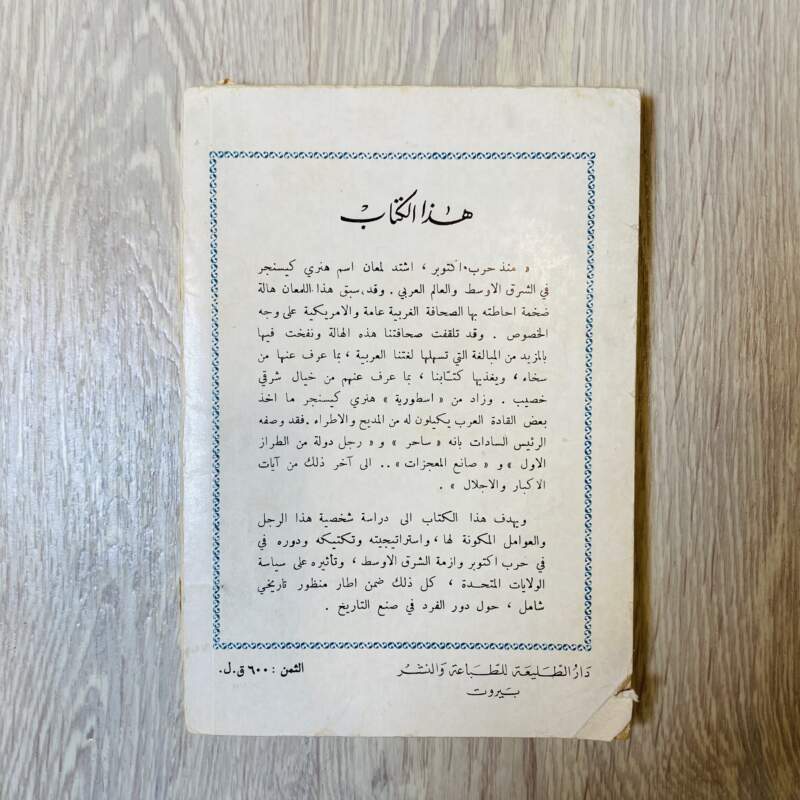 هذا الكتاب
« منذ حرب اكتوبر ، اشتد لمعان اسم هنري كيسنجر
في الشرق الاوسط والعالم العربي . وقد سبق هذا اللمعان هالة
ضخمة احاطته بها الصحافة الغربية عامة والامريكية على وجه
الخصوص . وقد تلقفت صحافتنا هذه الهالة ونفخت فيها
بالمزيد من المبالغة التي تسهلها لغتنا العربية ، بما عرف عنها من
سخاء ، ويغذيها كتـّابنا ، بما عرف عنهم من خيال شرقي
خصيب . وزاد من « اسطورية » هنري كيسنجر ما اخذ
بعض القادة العرب يكيلون له من المديح والاطراء . فقد وصفه
الرئيس السادات بانه « ساحر » و « رجل دولة من الطراز
الاول » و « صانع المعجزات » .. الى آخر ذلك من آيات
الاكبار والاجلال » .
ويهدف هذا الكتاب الى دراسة شخصية هذا الرجل
والعوامل المكونة لها ، واستراتيجيته وتكتيكه ودوره في
حرب اكتوبر وازمة الشرق الاوسط ، وتأثيره على سياسة
الولايات المتحدة ، كل ذلك ضمن اطار منظور تاريخي
شامل ، حول دور الفرد في صنع التاريخ .
دار الطليعة للطباعة والنشر
بيروت
الثمن : ٦٠٠ ق.ل.